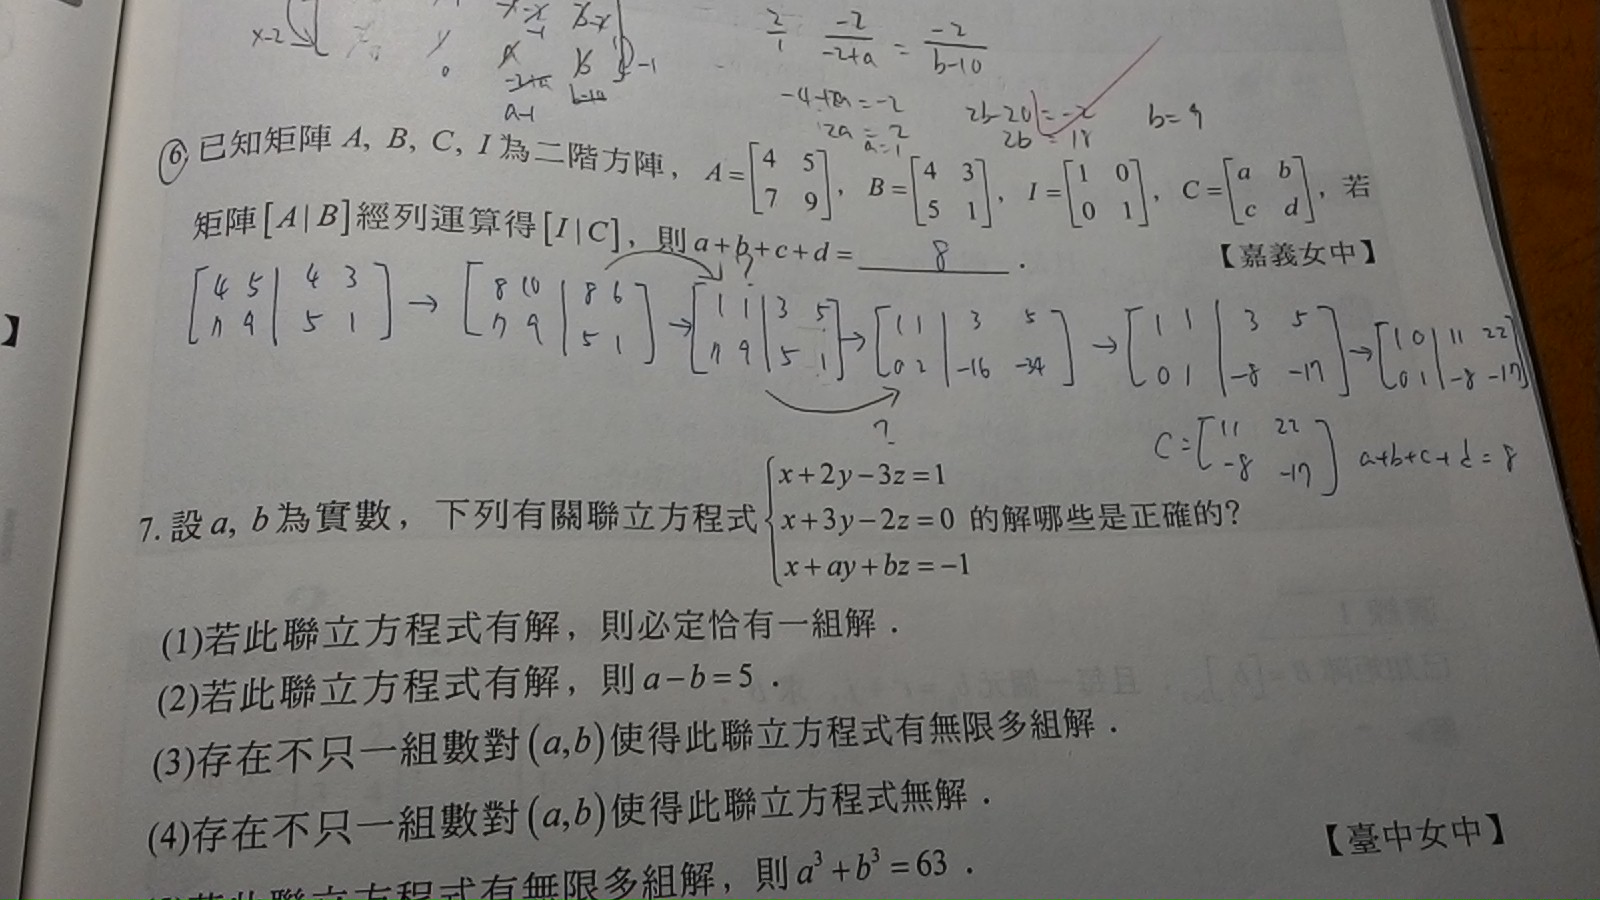 x-2
-1
a-1
2/1 -2/(-2+a) = -2/(b-10)
-4+2a=-2
2a=2
a=1
2b-20=-2
2b=18
b=9
⑥ 已知矩陣 A, B, C, I 為二階方陣，A=[4 5; 7 9]，B=[4 3; 5 1]，I=[1 0; 0 1]，C=[a b; c d]，若
矩陣[A|B]經列運算得[I|C]，則a+b+c+d= 8 .
【嘉義女中】
[4 5 | 4 3; 7 9 | 5 1] → [8 10 | 8 6; 7 9 | 5 1] → [1 1 | 3 5; 7 9 | 5 1] → [1 1 | 3 5; 0 2 | -16 -34] → [1 1 | 3 5; 0 1 | -8 -17] → [1 0 | 11 22; 0 1 | -8 -17]
?
?
C=[11 22; -8 -17] a+b+c+d=8
7. 設a, b為實數，下列有關聯立方程式{x+2y-3z=1; x+3y-2z=0; x+ay+bz=-1 的解哪些是正確的?
(1)若此聯立方程式有解，則必定恰有一組解．
(2)若此聯立方程式有解，則a-b=5．
(3)存在不只一組數對(a,b)使得此聯立方程式有無限多組解．
(4)存在不只一組數對(a,b)使得此聯立方程式無解．
【臺中女中】
若此聯立方程式有無限多組解，則a³+b³=63．
】